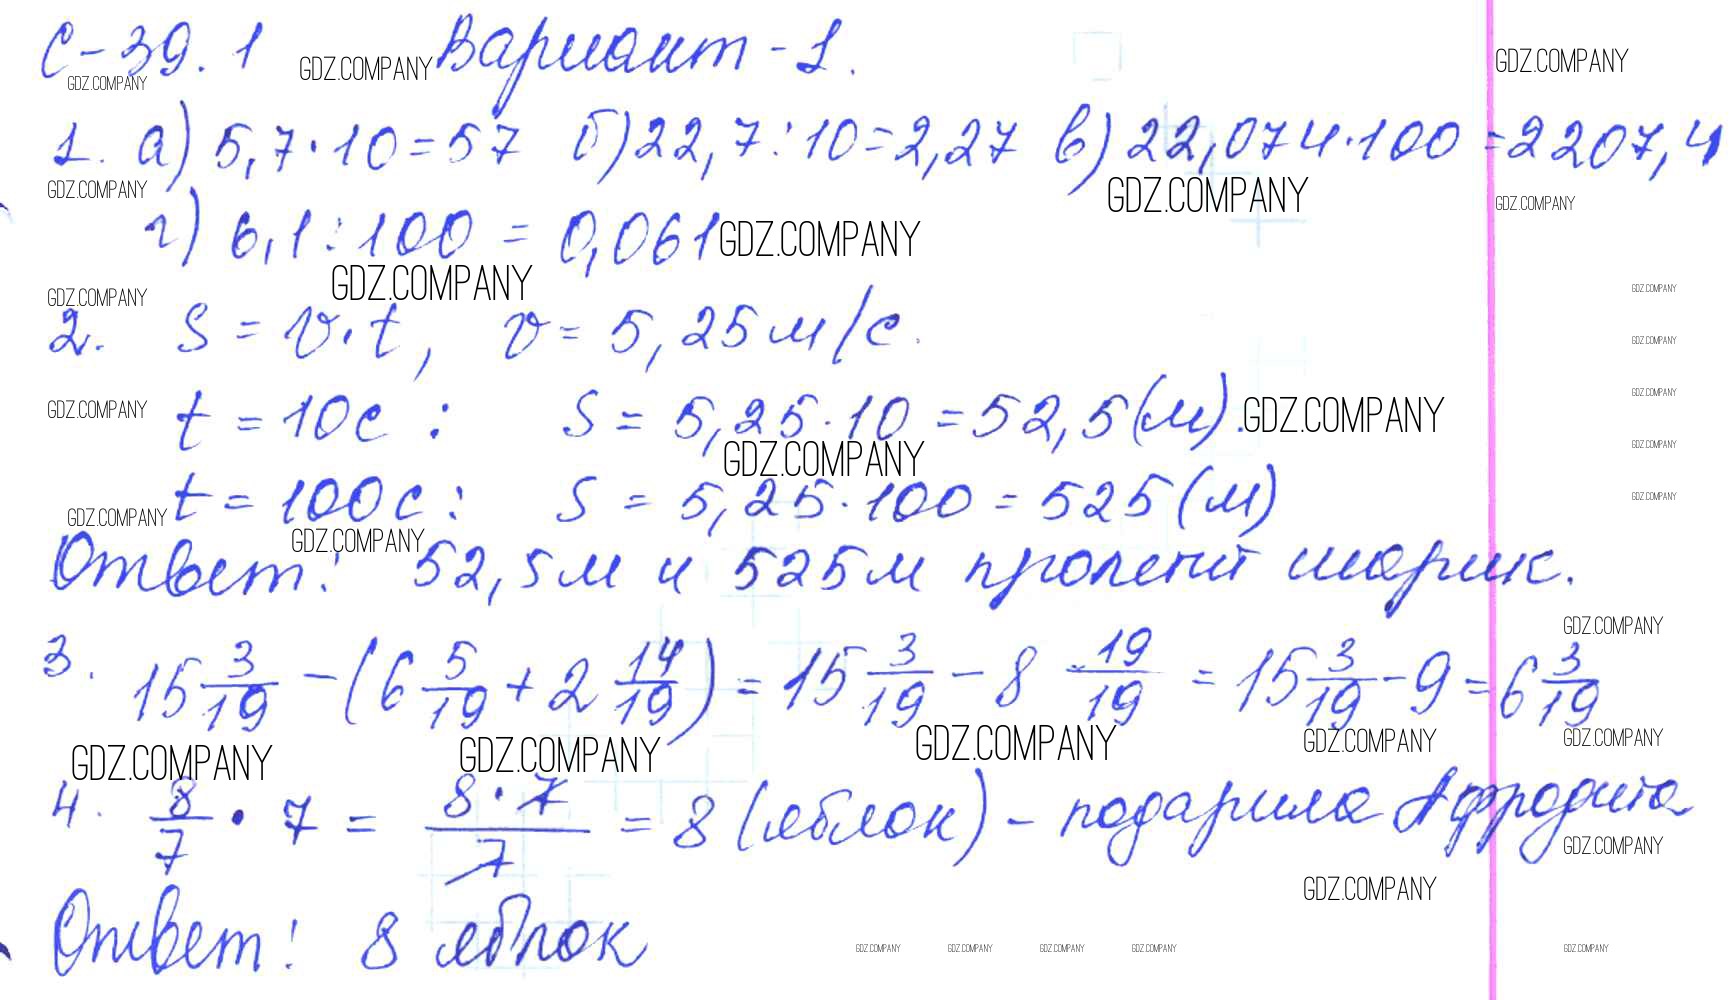 С-39.1 GDZ.COMPANY Вариант-1. GDZ.COMPANY
GDZ.COMPANY
1. а) 5,7·10=57 б) 22,7:10=2,27 в) 22,074·100=2207,4
GDZ.COMPANY GDZ.COMPANY GDZ.COMPANY
г) 6,1:100 = 0,061 GDZ.COMPANY
GDZ.COMPANY GDZ.COMPANY GDZ.COMPANY
2. S = v·t, v = 5,25 м/с.
GDZ.COMPANY
GDZ.COMPANY t = 10с : S = 5,25·10 = 52,5(м). GDZ.COMPANY
GDZ.COMPANY
GDZ.COMPANY GDZ.COMPANY
t = 100с : S = 5,25·100 = 525(м)
GDZ.COMPANY
GDZ.COMPANY GDZ.COMPANY
Ответ: 52,5м и 525м пролетит шарик.
GDZ.COMPANY
3. 15 3/19 - (6 5/19 + 2 14/19) = 15 3/19 - 8 19/19 = 15 3/19 - 9 = 6 3/19
GDZ.COMPANY GDZ.COMPANY GDZ.COMPANY GDZ.COMPANY GDZ.COMPANY
4. 8/7 · 7 = 8·7/7 = 8 (яблок) - подарила Афродита
GDZ.COMPANY
GDZ.COMPANY
Ответ: 8 яблок
GDZ.COMPANY GDZ.COMPANY GDZ.COMPANY GDZ.COMPANY GDZ.COMPANY